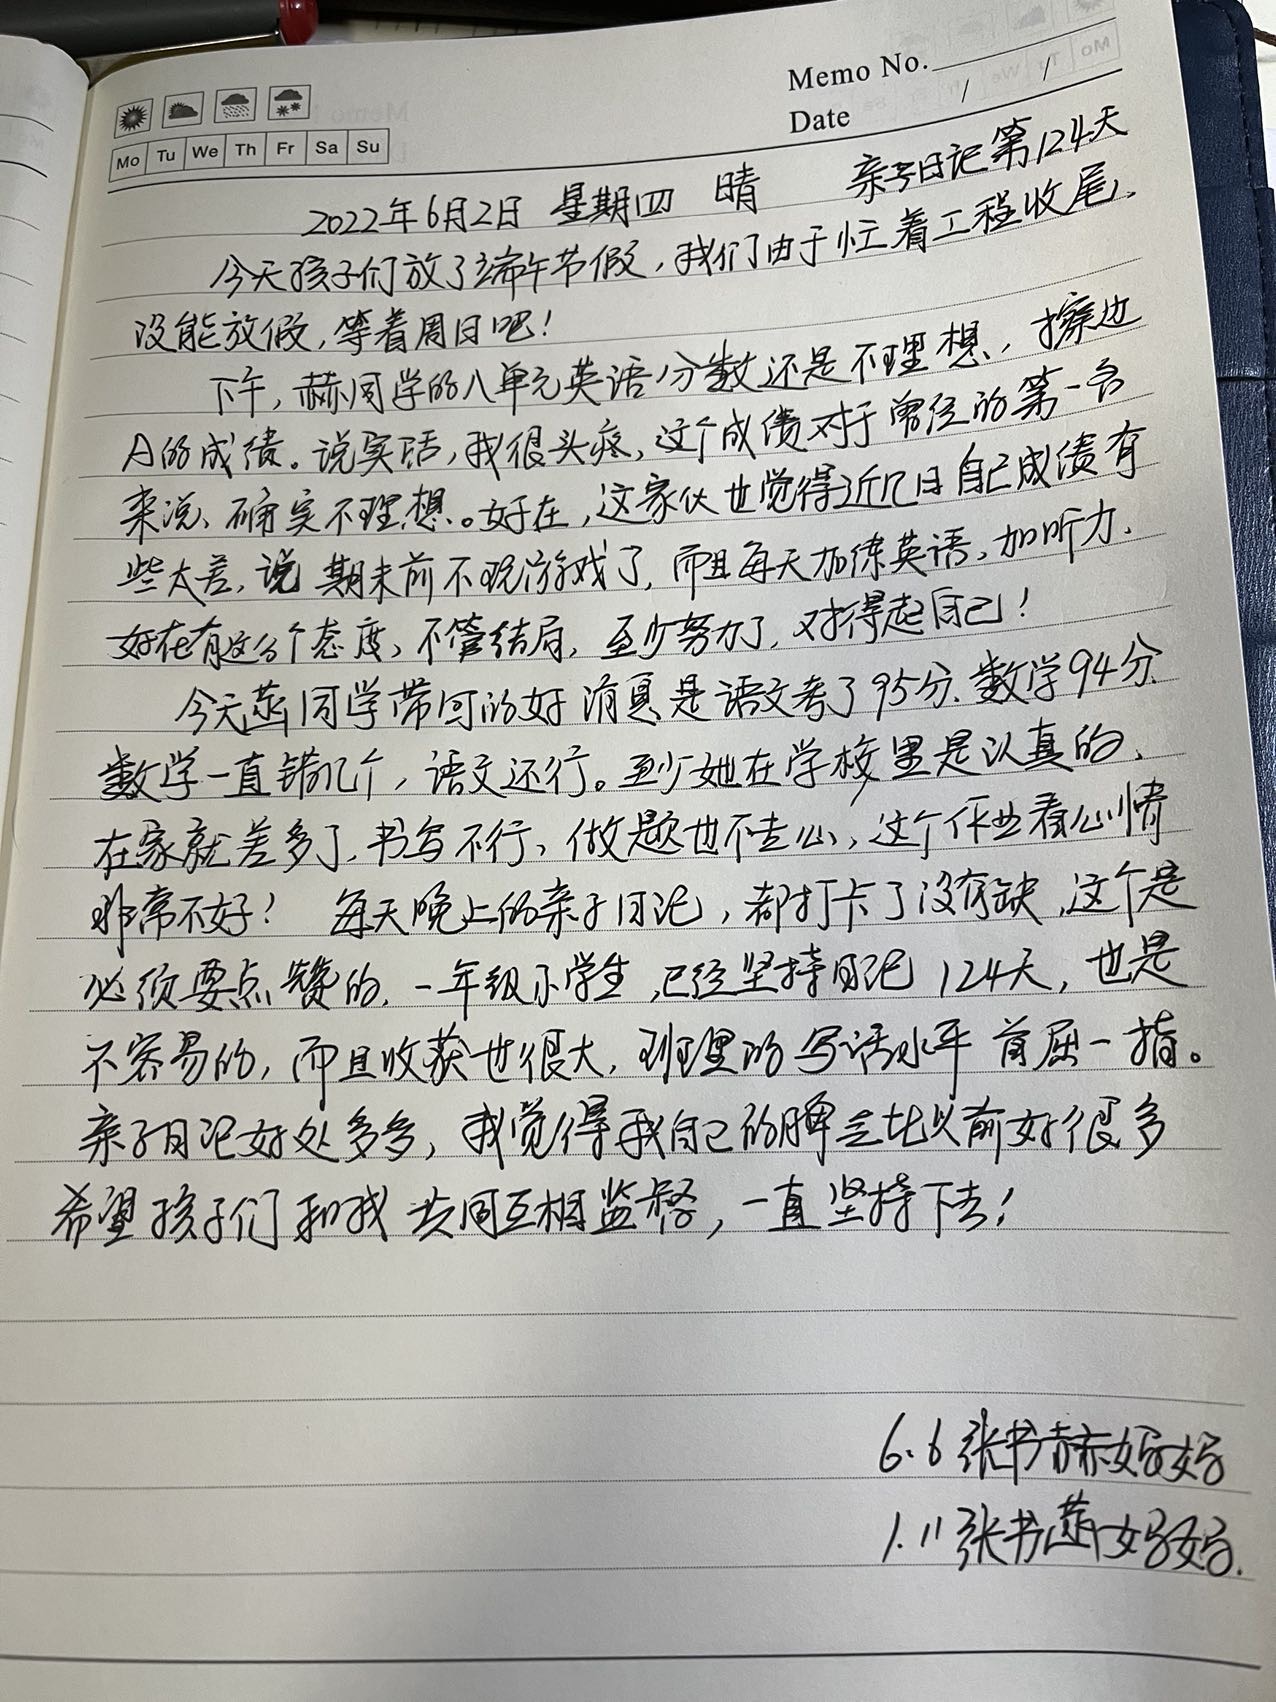 Memo No.
Date / /
Mo Tu We Th Fr Sa Su
2022年6月2日 星期四 晴 亲子日记第124天
今天孩子们放了端午节假,我们由于忙着工程收尾、
没能放假,等着周日吧!
下午,赫同学的八单元英语分数还是不理想,擦边
A的成绩。说实话,我很头疼,这个成绩对于曾经的第一名
来说、确实不理想。好在,这家伙也觉得近几日自己成绩有
些太差,说期末前不玩游戏了,而且每天加练英语,加听力、
好在有这么个态度,不管结局,至少努力了,对得起自己!
今天菡同学带回的好消息是语文考了95分、数学94分、
数学一直错几个,语文还行。至少她在学校里是认真的、
在家就差多了,书写不行、做题也不走心,这个作业看心情
非常不好! 每天晚上的亲子日记,都打卡了没有缺,这个是
必须要点赞的,一年级小学生,已经坚持日记124天,也是
不容易的,而且收获也很大,班里的写话水平首屈一指。
亲子日记好处多多,我觉得我自己的脾气比以前好很多
希望孩子们和我共同互相监督,一直坚持下去!
6.6 张书赫妈妈
1.11 张书菡妈妈.